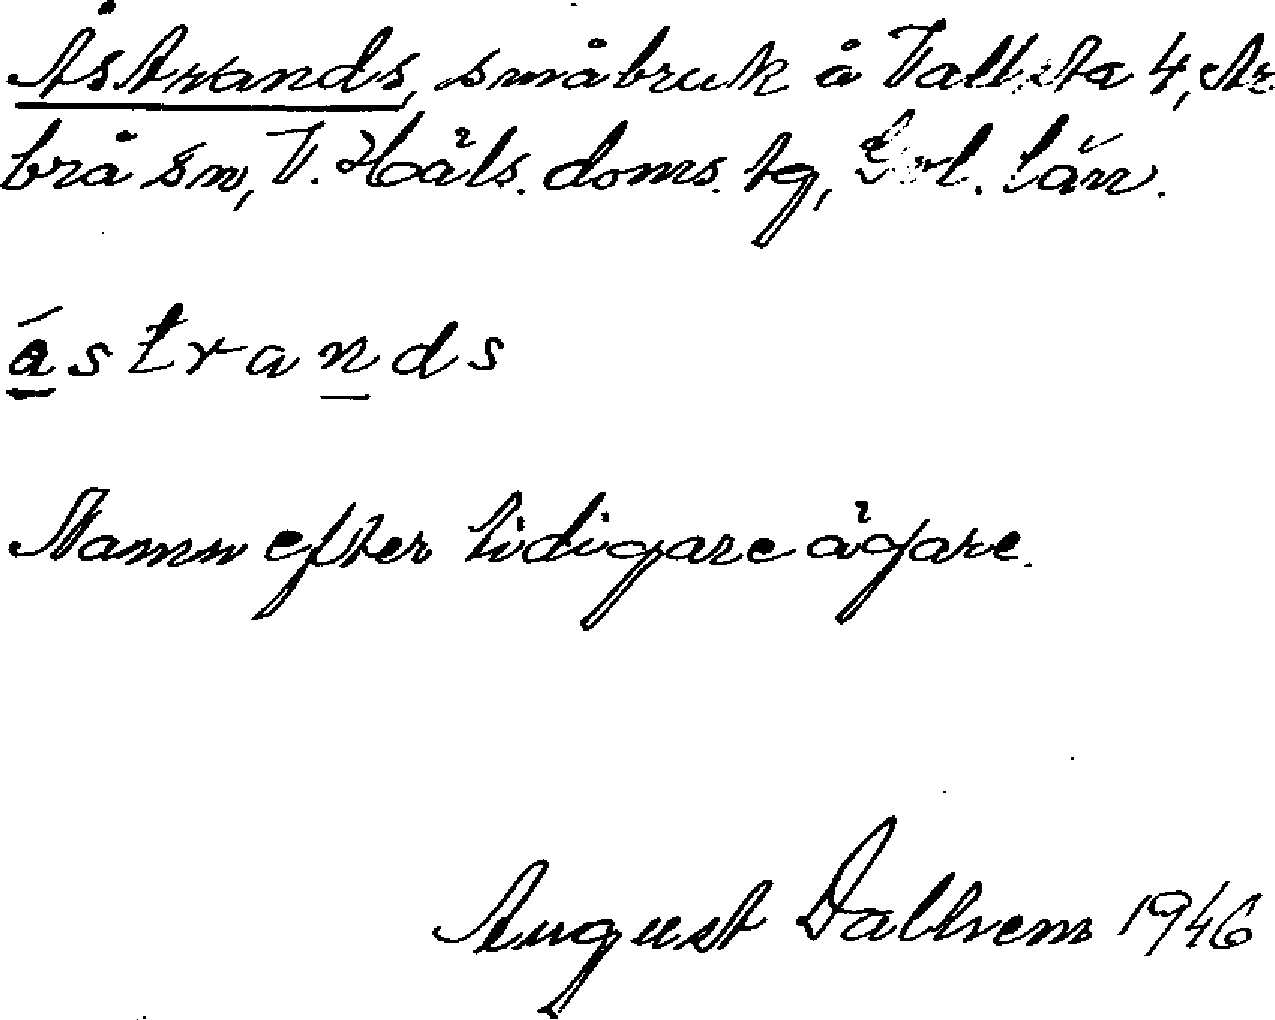 Åstrands, småbruk å Vallsta 4, Ar
brå sn, V. Häls. doms. tg, Gvl. län.
ástrands
Namn efter tidigare ägare.
August Dalhem 1946